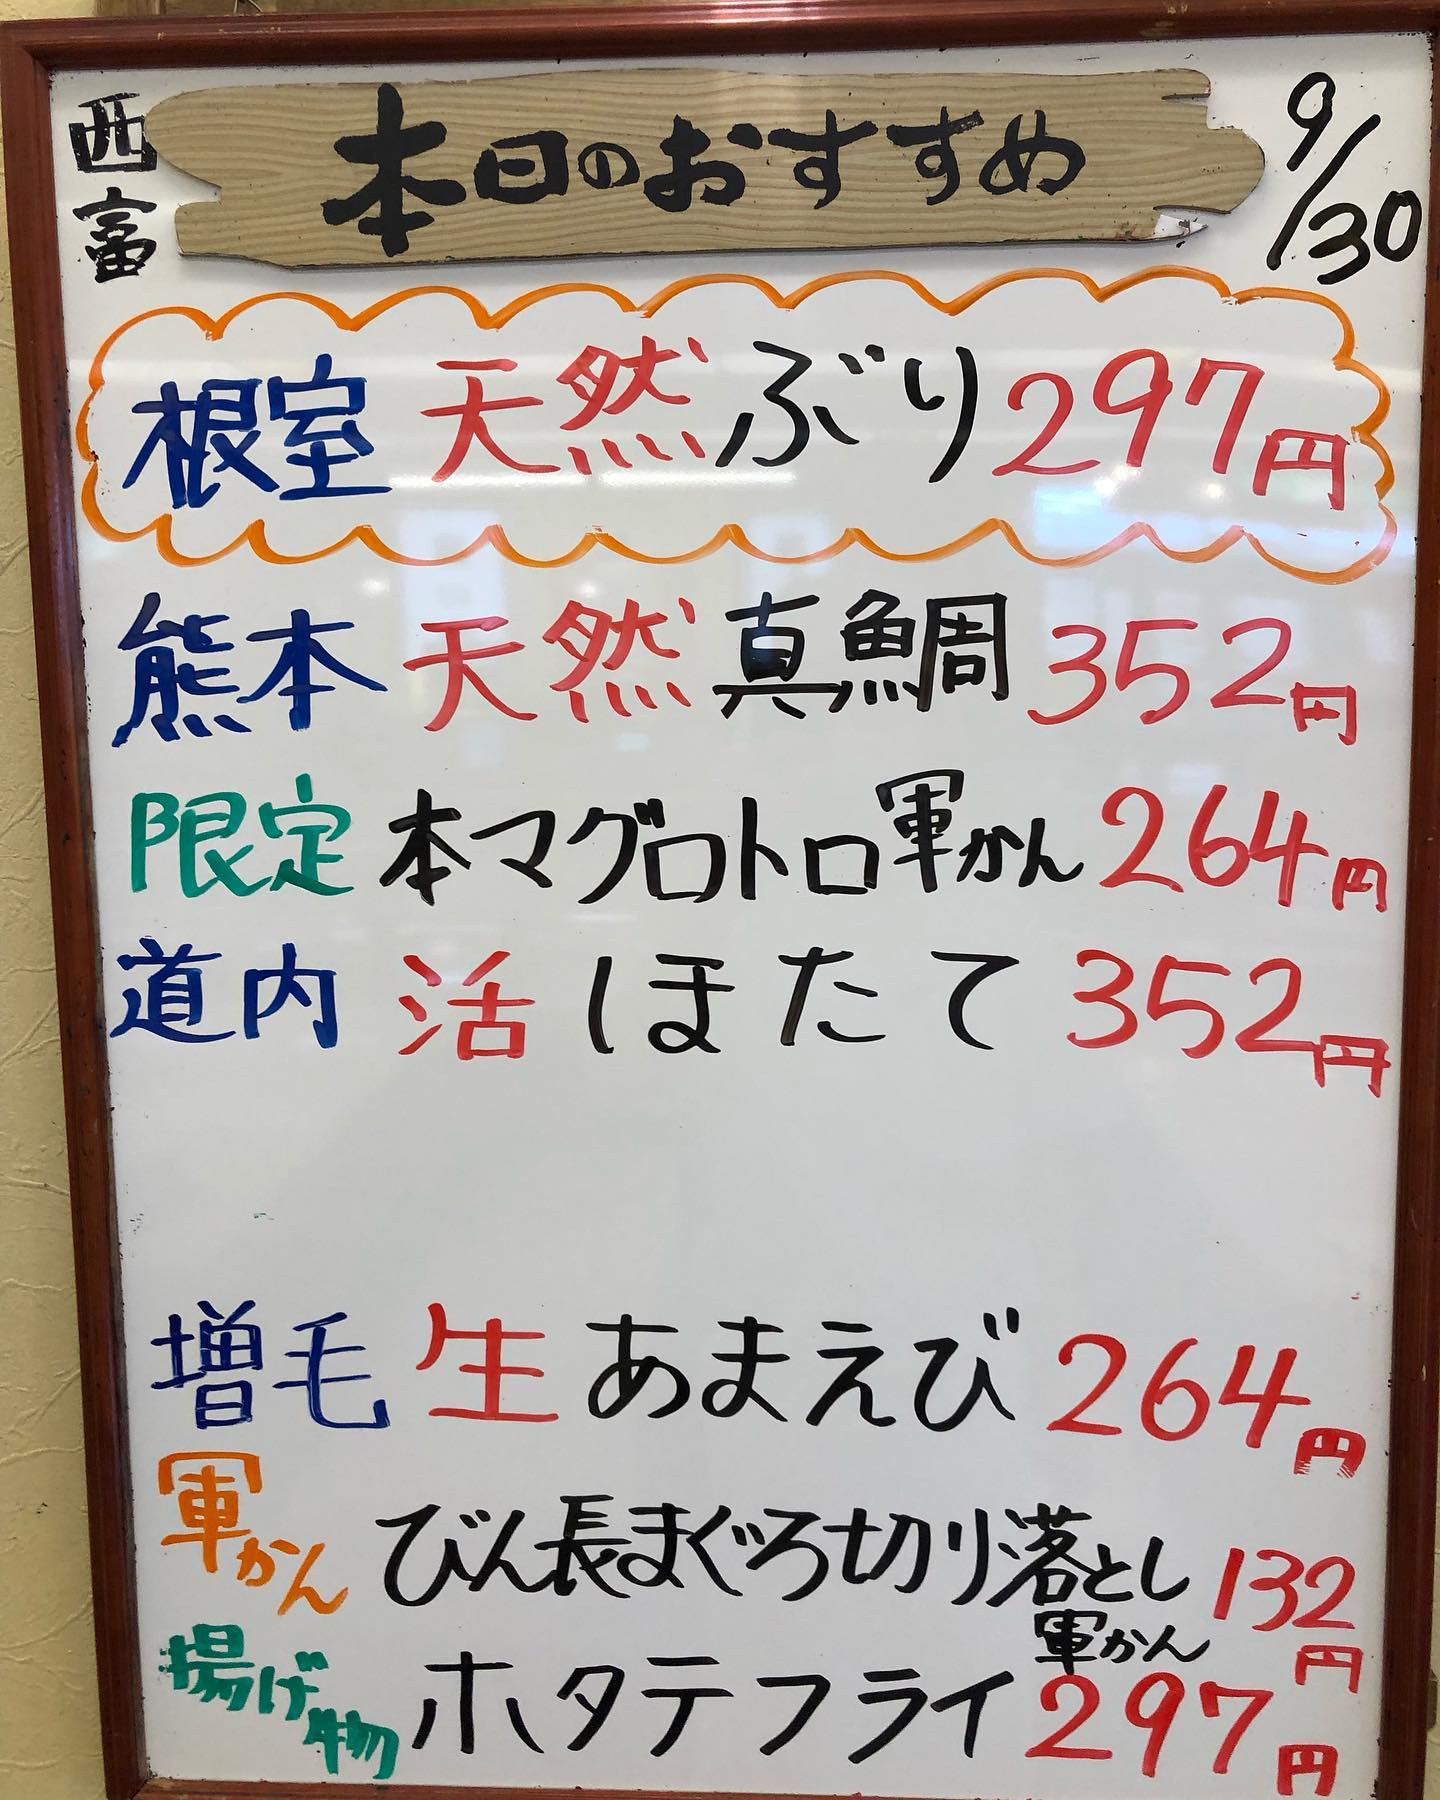 西富
本日のおすすめ
9/30
根室 天然ぶり 297円
熊本 天然 真鯛 352円
限定 本マグロトロ軍かん 264円
道内 活 ほたて 352円
増毛 生 あまえび 264円
軍かん びん長まぐろ切り落とし 132円
軍かん
揚げ物 ホタテフライ 297円